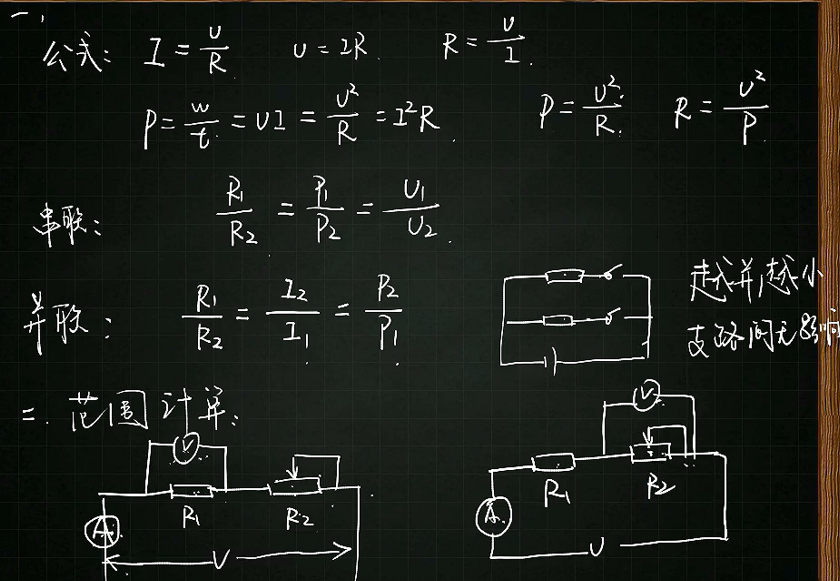 一、
公式: I = U/R  U = IR  R = U/I
P = W/t = UI = U²/R = I²R  P = U²/R  R = U²/P
串联: R1/R2 = P1/P2 = U1/U2
并联: R1/R2 = I2/I1 = P2/P1
越并越小
支路间无影响
二. 范围计算:
V
R1 R2
A
U
V
R1 R2
A
U